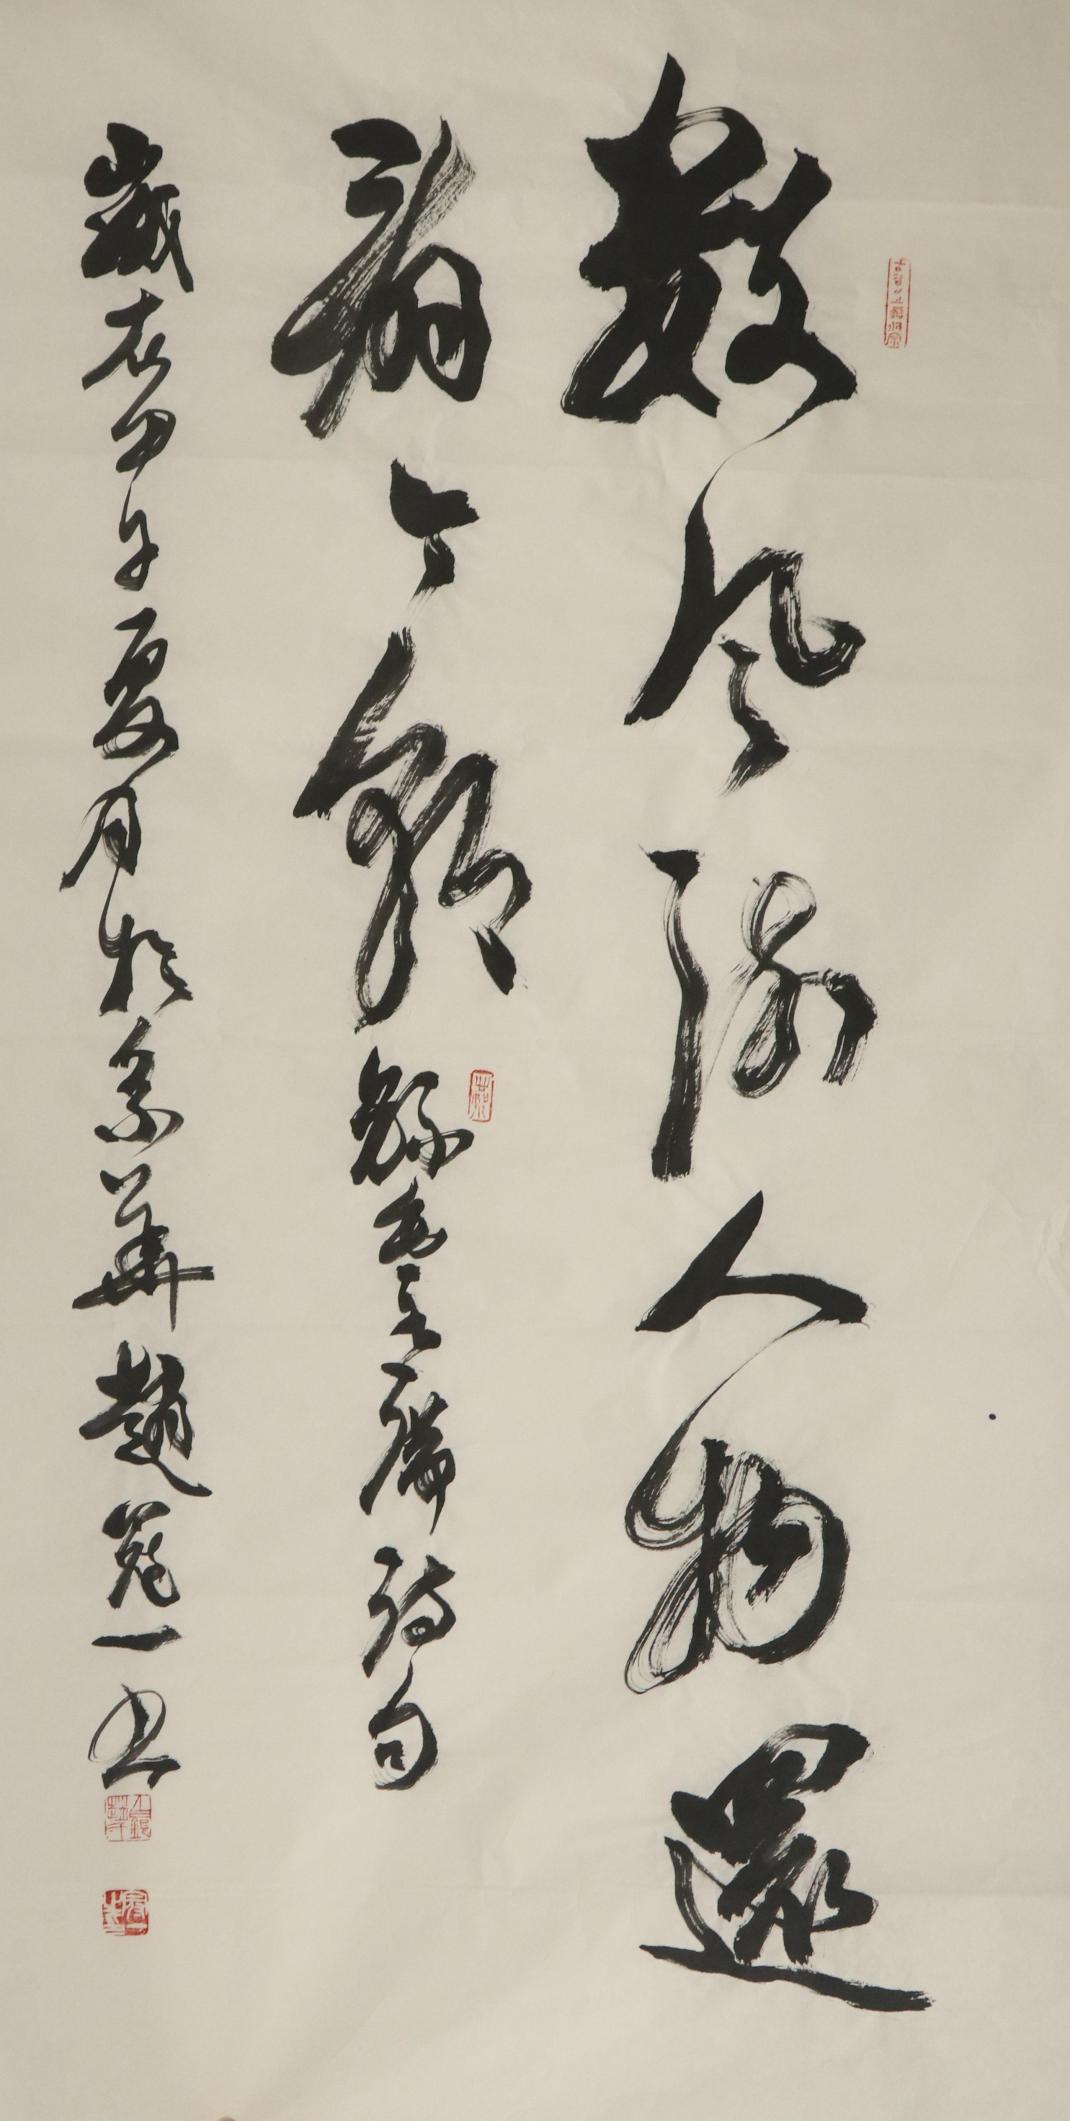 數風流人物還
看今朝 錄毛主席詩句
歲在甲午夏月於京華趙冠一書